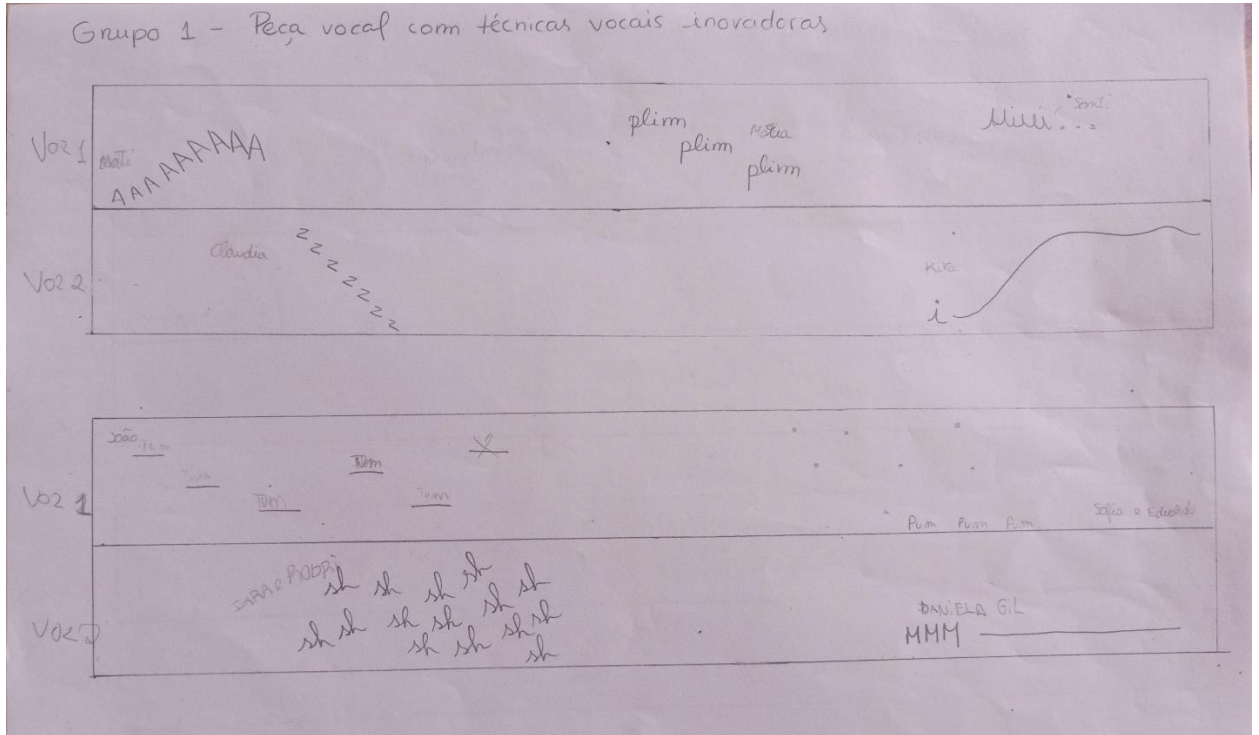 Grupo 1 - Peça vocal com técnicas vocais inovadoras
Voz 1
Mati
AAAAAAAAAA
plim
plim
plim
Voz 2
Claudia
z z z z z z z z
Kika
i
Voz 1
João
Tum
Tum
Tum
Tum
Tum
Pum Pum Pum
Sofia e Eduardo
Voz 2
SARA e RODRI
sh sh sh sh sh
sh sh sh sh sh sh
sh sh sh
DANIELA GIL
MMM